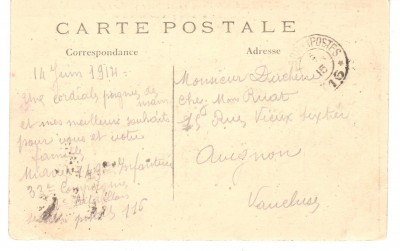 CARTE POSTALE
Correspondance
14 Juin 1917 =
Une cordiale poignée de main
et mes meilleurs souhaits
pour vous et votre
famille
Infanterie
33e Compagnie
Bataillon
postal 116
Adresse
POSTES
15
16
Monsieur
chez Mon Ruat
15 Rue Vieux Sextier
Avignon
Vaucluse